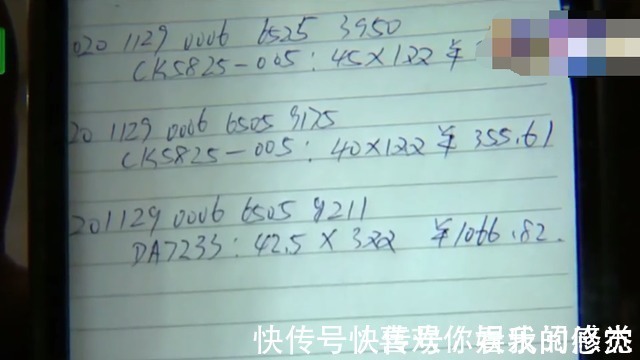 020 1129 0006 6525 3950
CK5825-005: 45×122 ¥
20 1129 0006 6505 9175
CK5825-005: 40×122 ¥ 355.61
201129 0006 6505 9211
DA7233: 42.5 × 322 ¥1066.82.
快传号